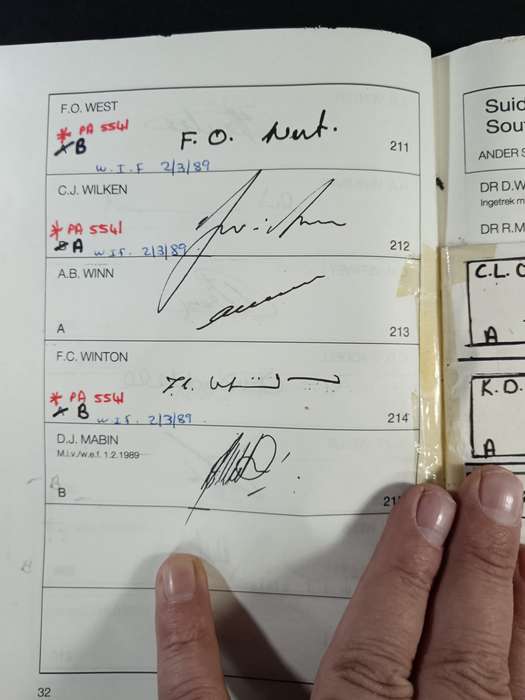 F.O. WEST
* PA 5541
B
F. O. West.
W.I.F 2/3/89
211
C.J. WILKEN
* PA 5541
A
W.I.F. 2/3/89
212
A.B. WINN
A
213
F.C. WINTON
* PA 5541
B
W.I.F. 2/3/89
214
D.J. MABIN
M.i.v./w.e.f. 1.2.1989
B
32
Suid
Sou
ANDER S
DR D.W
Ingetrek m
DR R.M
C.L. C
A
K. D.
A